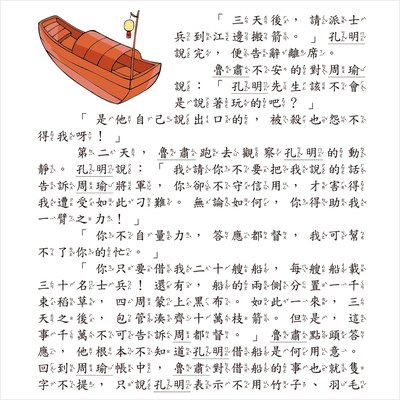 「三天後，請派士
兵到江邊搬箭。」孔明
說完，便告辭離席。
魯肅不安的對周瑜
說：「孔明先生該不會
是說著玩的吧？」
「是他自己說出口的，被殺也怨不
得我呀！」
第二天，魯肅跑去觀察孔明的動
靜。孔明說：「我請你不要把我說的話
告訴周瑜將軍，你卻不守信用，才害得
我遭受如此刁難。無論如何，你得助我
一臂之力！」
「你不自量力，答應都督，我可幫
不了你的忙。」
「你只要借我二十艘船，每艘船載
三十名士兵！還有，船的兩側分置一千
束稻草，四周蒙上黑布。如此一來，三
天之後，包管湊齊十萬枝箭。但是，這
事千萬不可告訴周都督。」魯肅點頭答
應，他根本不知道孔明借船是何用意。
回到周瑜帳中，魯肅對借船的事也就隻
字不提，只說孔明表示不用竹子、羽毛